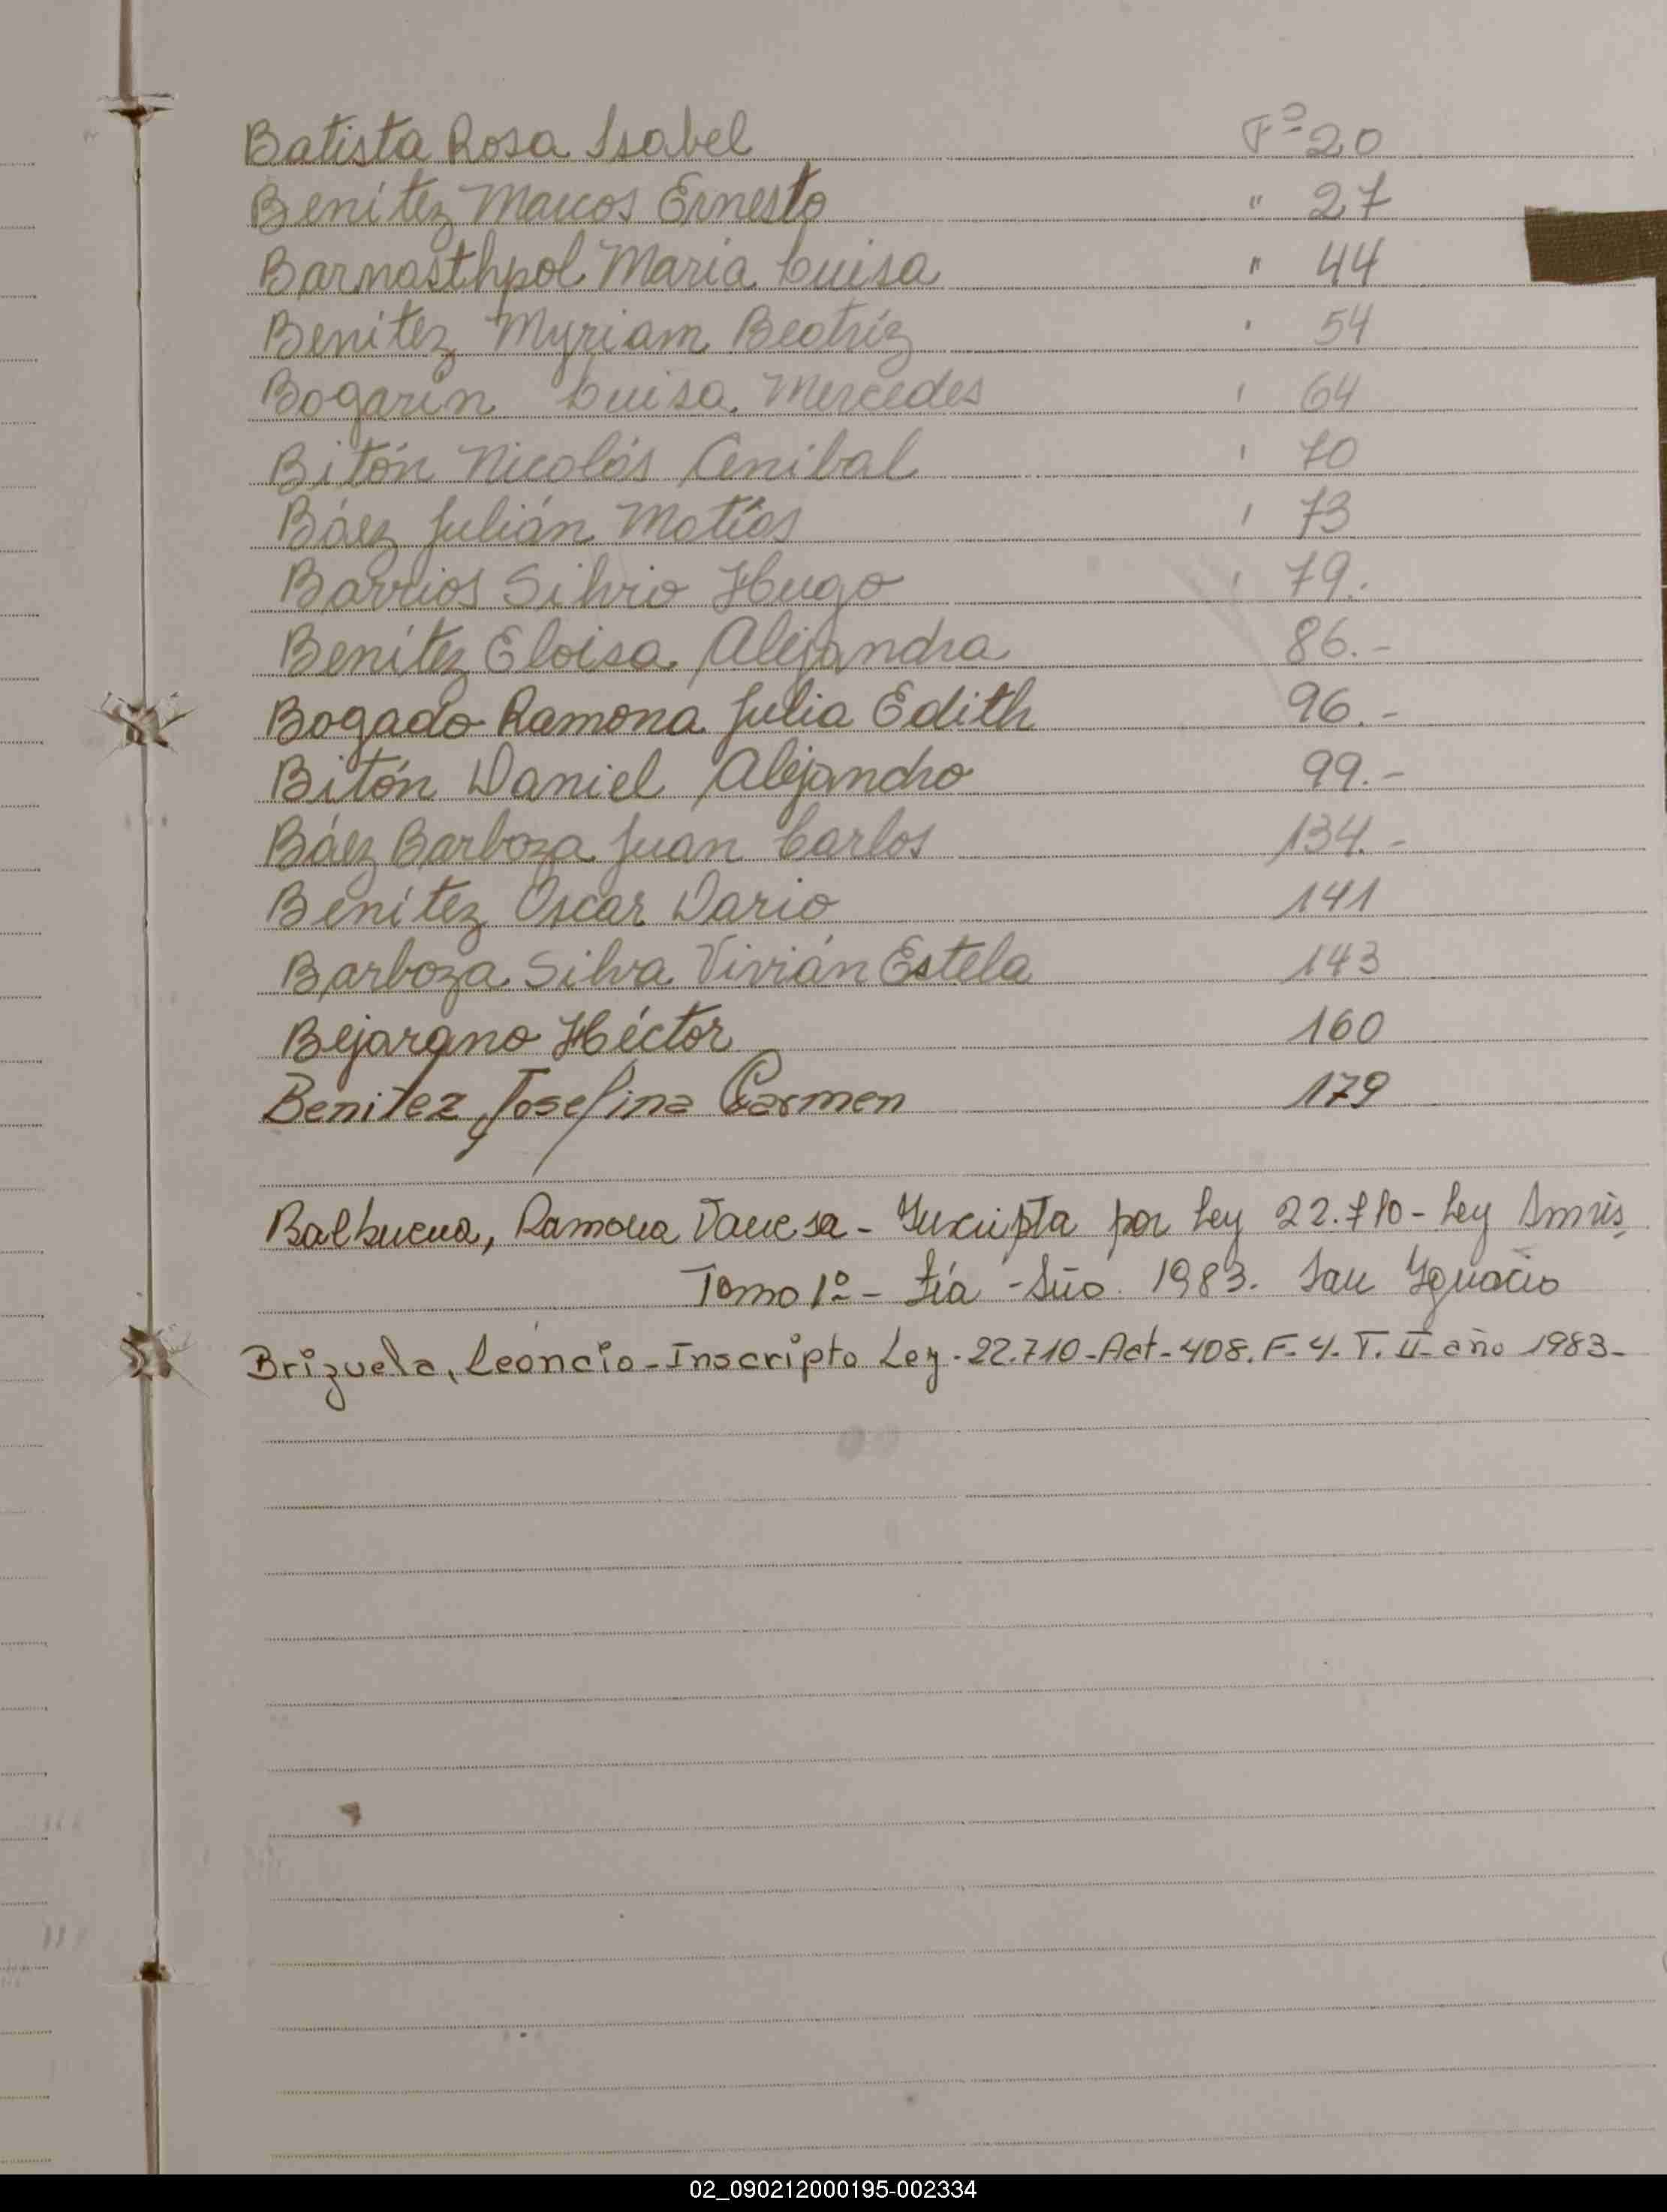 Batista Rosa Isabel Fº 20
Benítez Marcos Ernesto " 27
Barnasthpol Maria Luisa " 44
Benítez Myriam Beatríz ' 54
Bogarin Luisa Mercedes ' 64
Bitón Nicolás Anibal ' 70
Báez Julián Matías ' 73
Barrios Silvio Hugo ' 79.
Benítez Eloisa Alejandra 86.-
Bogado Ramona Julia Edith 96.-
Bitón Daniel Alejandro 99.-
Báez Barboza Juan Carlos 134.-
Benítez Oscar Dario 141
Barboza Silva Vivián Estela 143
Bejarano Héctor 160
Benitez, Josefina Carmen 179
Balbuena, Ramona Vanesa - Inscripta por Ley 22.710 - Ley
Tomo 1º - Año 1983. San Ignacio
Brizuela, Leoncio - Inscripto Ley - 22.710 - Act - 408. F- 4. T. II - año 1983 -
02_090212000195-002334